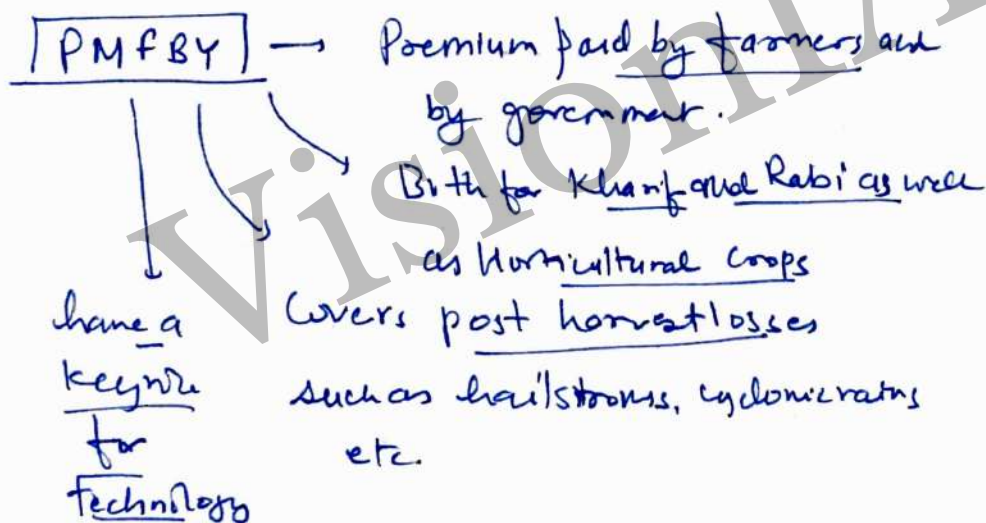 PMFBY → Premium paid by farmers and
by government.
Both for Kharif and Rabi as well
as Horticultural Crops
Covers post harvest losses
such as hailstroms, cyclonic rains
etc.
have a
key role
for
Technology
VisionIA